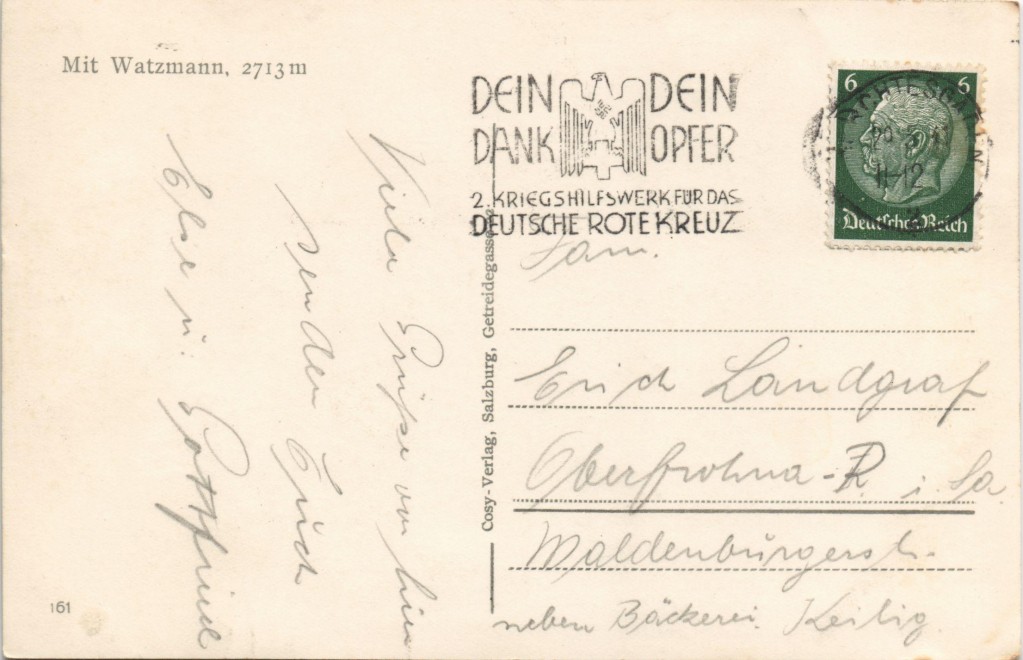 Mit Watzmann, 2713 m
Viele Grüße von hier
senden Euch
Else u. Gottfried
161
Cosy-Verlag, Salzburg, Getreidegasse
DEIN DEIN
DANK OPFER
2. KRIEGSHILFSWERK FÜR DAS
DEUTSCHE ROTE KREUZ
6 6
Deutsches Reich
BERCHTESGADEN
11-12
Fam.
Erich Landgraf
Oberfrohna-R. i. Sa.
Waldenburgerstr.
neben Bäckerei Keilig.